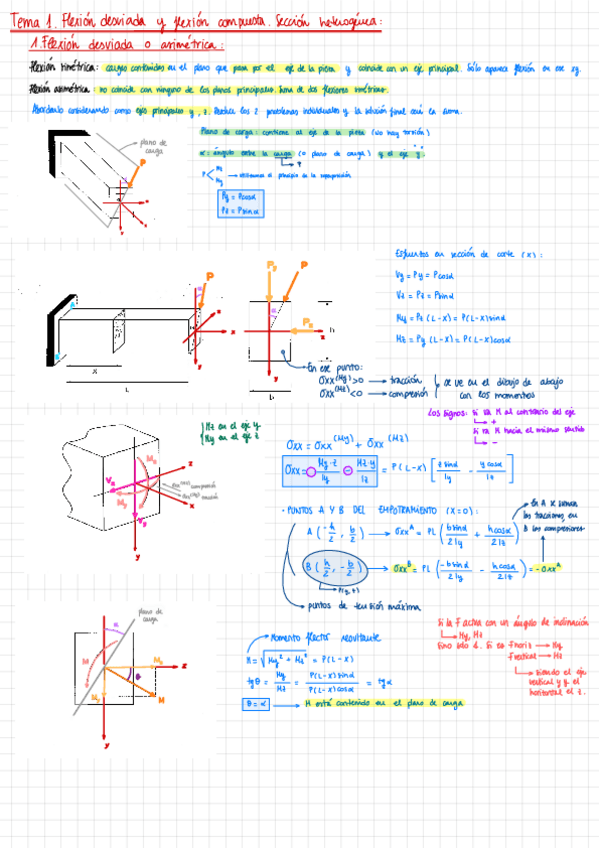 Tema 1. Flexión desviada y flexión compuesta. Sección heterogénea:
1. Flexión desviada o asimétrica:
Flexión simétrica: cargas contenidas en el plano que pasa por el eje de la pieza y coincide con un eje principal. Sólo aparece flexión en ese xy.
Flexión asimétrica: no coincide con ninguno de los planos principales. Suma de dos flexiones simétricas.
Abordarlo considerando como ejes principales y, z. los 2 problemas individuales y la solución final será la suma.
Plano de carga: contiene al eje de la pieza (no hay torsión)
α: ángulo entre la carga (o plano de carga) y el eje y.
P
principio de la superposición
Py = Pcosα
Pz = Psinα
plano de carga
P
x
z
y
Esfuerzos en sección de corte (x):
Vy = Py = Pcosα
Vz = Pz = Psinα
My = Pz (L-x) = P(L-x)sinα
Mz = Py (L-x) = P(L-x)cosα
P
α
A
B
x
L
z
y
Py
P
Pz
h
b
En ese punto:
σxx(My)>0 → tracción
σxx(Mz)<0 → compresión
se ve en el dibujo de abajo
con los momentos
Los signos: Si va M al contrario del eje
→ +
Si va M hacia el mismo sentido
→ -
Mz en el eje y
My en el eje z
σxx = σxx(My) + σxx(Mz)
σxx = My·z/Iy - Mz·y/Iz = P(L-x) [z sinα/Iy - y cosα/Iz]
compresión
tracción
· PUNTOS A Y B DEL EMPOTRAMIENTO (x=0):
A (-h/2, b/2) → σxxA = PL (b sinα/2Iy + h cosα/2Iz)
B (h/2, -b/2) → σxxB = PL (-b sinα/2Iy - h cosα/2Iz) = -σxxA
(y, z)
puntos de tensión máxima
En A
las tracciones, en
B las compresiones
plano de carga
α
M
θ
z
y
Momento flector resultante
M = √(My² + Mz²) = P(L-x)
tgθ = My/Mz = P(L-x)sinα/P(L-x)cosα = tgα
θ = α → M está contenido en el plano de carga
Si la F actúa con un ángulo de inclinación
→ My, Mz
Sino solo 1. Si es Fhoriz → My
Fvertical → Mz
→ Siendo el eje
vertical y y el
horizontal el z.